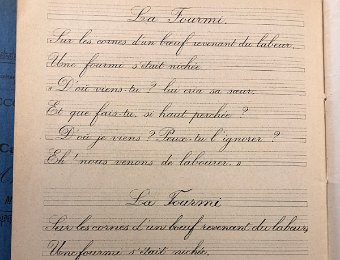 La Fourmi.
Sur les cornes d'un bœuf revenant du labeur,
Une fourmi s'était nichée
« D'où viens-tu ? lui cria sa sœur,
Et que fais-tu, si haut perchée ?
D'où je viens ? Peux-tu l'ignorer ?
Eh ! nous venons de labourer. »
La Fourmi
Sur les cornes d'un bœuf revenant du labeur,
Une fourmi s'était nichée.